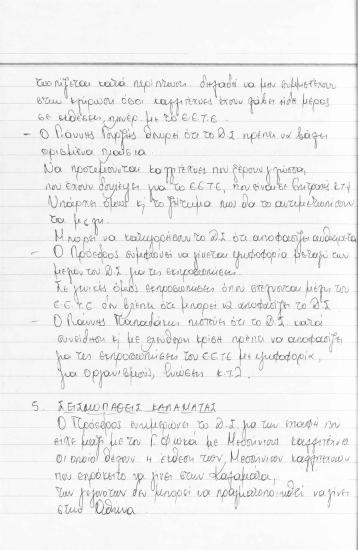 κατά περίπτωση. Δηλαδή να μην συμμετέχουν
στην κλήρωση όσοι καλλιτέχνες έχουν λάβει ήδη μέρος
σε εκθέσεις, με το Ε.Ε.Τ.Ε.
- Ο Γιάννης θεωρεί ότι το Δ.Σ πρέπει να βάλει
ορισμένα πλαίσια.
Να προτιμούνται καλλιτέχνες που ξέρουν γλώσσα,
που έχουν δουλέψει για το ΕΕΤΕ, που είναι σε επιτροπές κ.τ.λ
Υπάρχει όμως κ, το ζήτημα πως θα το αντιμετωπίσουν
τα μέλη.
Μπορεί να κατηγορήσουν το Δ.Σ. ότι αποφασίζει αυθαίρετα
- Ο Πρόεδρος συμφωνεί να γίνεται ψηφοφορία μεταξύ των
μελών του Δ.Σ για τις εκπροσωπήσεις.
Σε γενικές όμως εκπροσωπήσεις όπου στέλνονται μέλη του
Ε.Ε.Τ.Ε δεν βλέπει ότι μπορεί να αποφασίζει το Δ.Σ
- Ο Γιάννης Παπαδάκης πιστεύει ότι το Δ.Σ. κατά
συνείδηση κ, με ελεύθερη κρίση πρέπει να αποφασίζει
για τις εκπροσωπήσεις του ΕΕΤΕ με ψηφοφορία,
για οργανισμούς, ενώσεις κ.τ.λ.
5. ΣΕΙΣΜΟΠΑΘΕΙΣ ΚΑΛΑΜΑΤΑΣ
Ο Πρόεδρος ενημερώνει το Δ.Σ. για την επαφή που
είχε μαζί με τον Γ. Φωκά με Μεσσήνιους καλλιτέχνες
οι οποίοι θέλουν η έκθεση των Μεσσήνιων καλλιτεχνών
που επρόκειτο να γίνει στην Καλαμάτα,
των γεγονότων δεν μπορεί να πραγματοποιηθεί να γίνει
στην Αθήνα